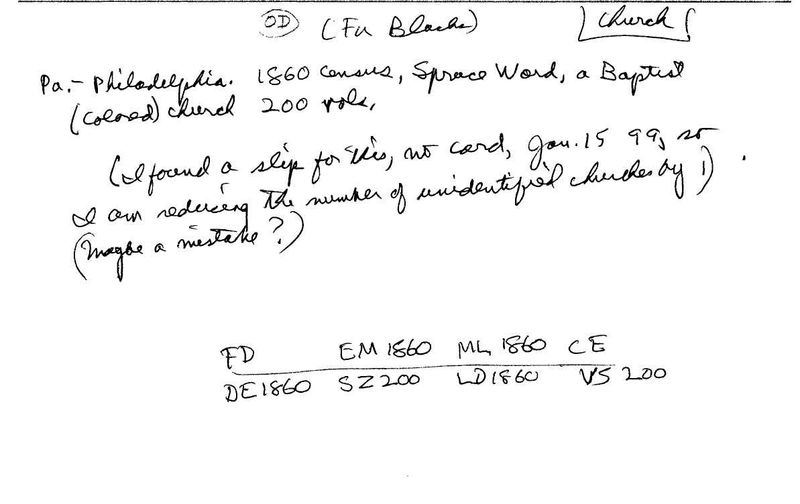 OD (Fu Blacks) Church
Pa.- Philadelphia. 1860 census, Spruce Word, a Baptist
(colored) church 200 vols,
(I found a slip for this, not card, Jan. 15 99, so
I am reducing the number of unidentified churches by 1)
(Maybe a mistake?)
FD EM 1860 ML 1860 CE
DE 1860 SZ 200 LD 1860 VS 200